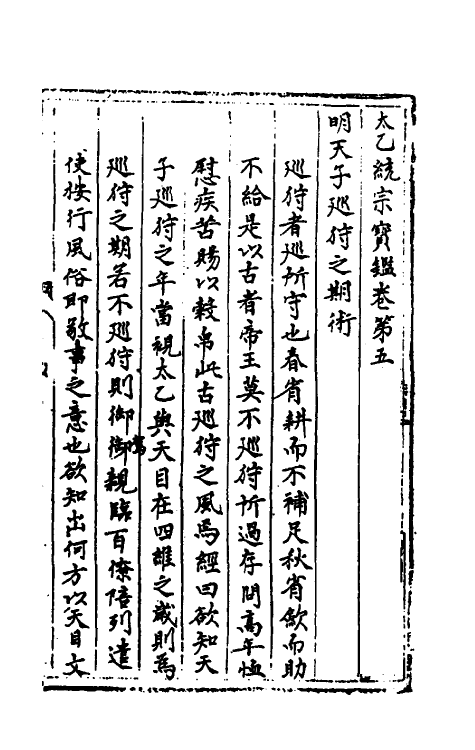 太乙統宗寳鑑卷第五
明天子廵狩之期術
廵狩者廵所守也春省耕而不補足秋省歛而助
不給是以古者帝王莫不廵狩所過存問高年恤
慰疾苦賜以穀帛此古廵狩之風焉經曰欲知天
子廵狩之年當視太乙與天目在四維之歲則爲
廵狩之期若不廵狩則御衙親臨百僚陪列遣
使按行風俗即敬事之意也欲知出何方以天目文